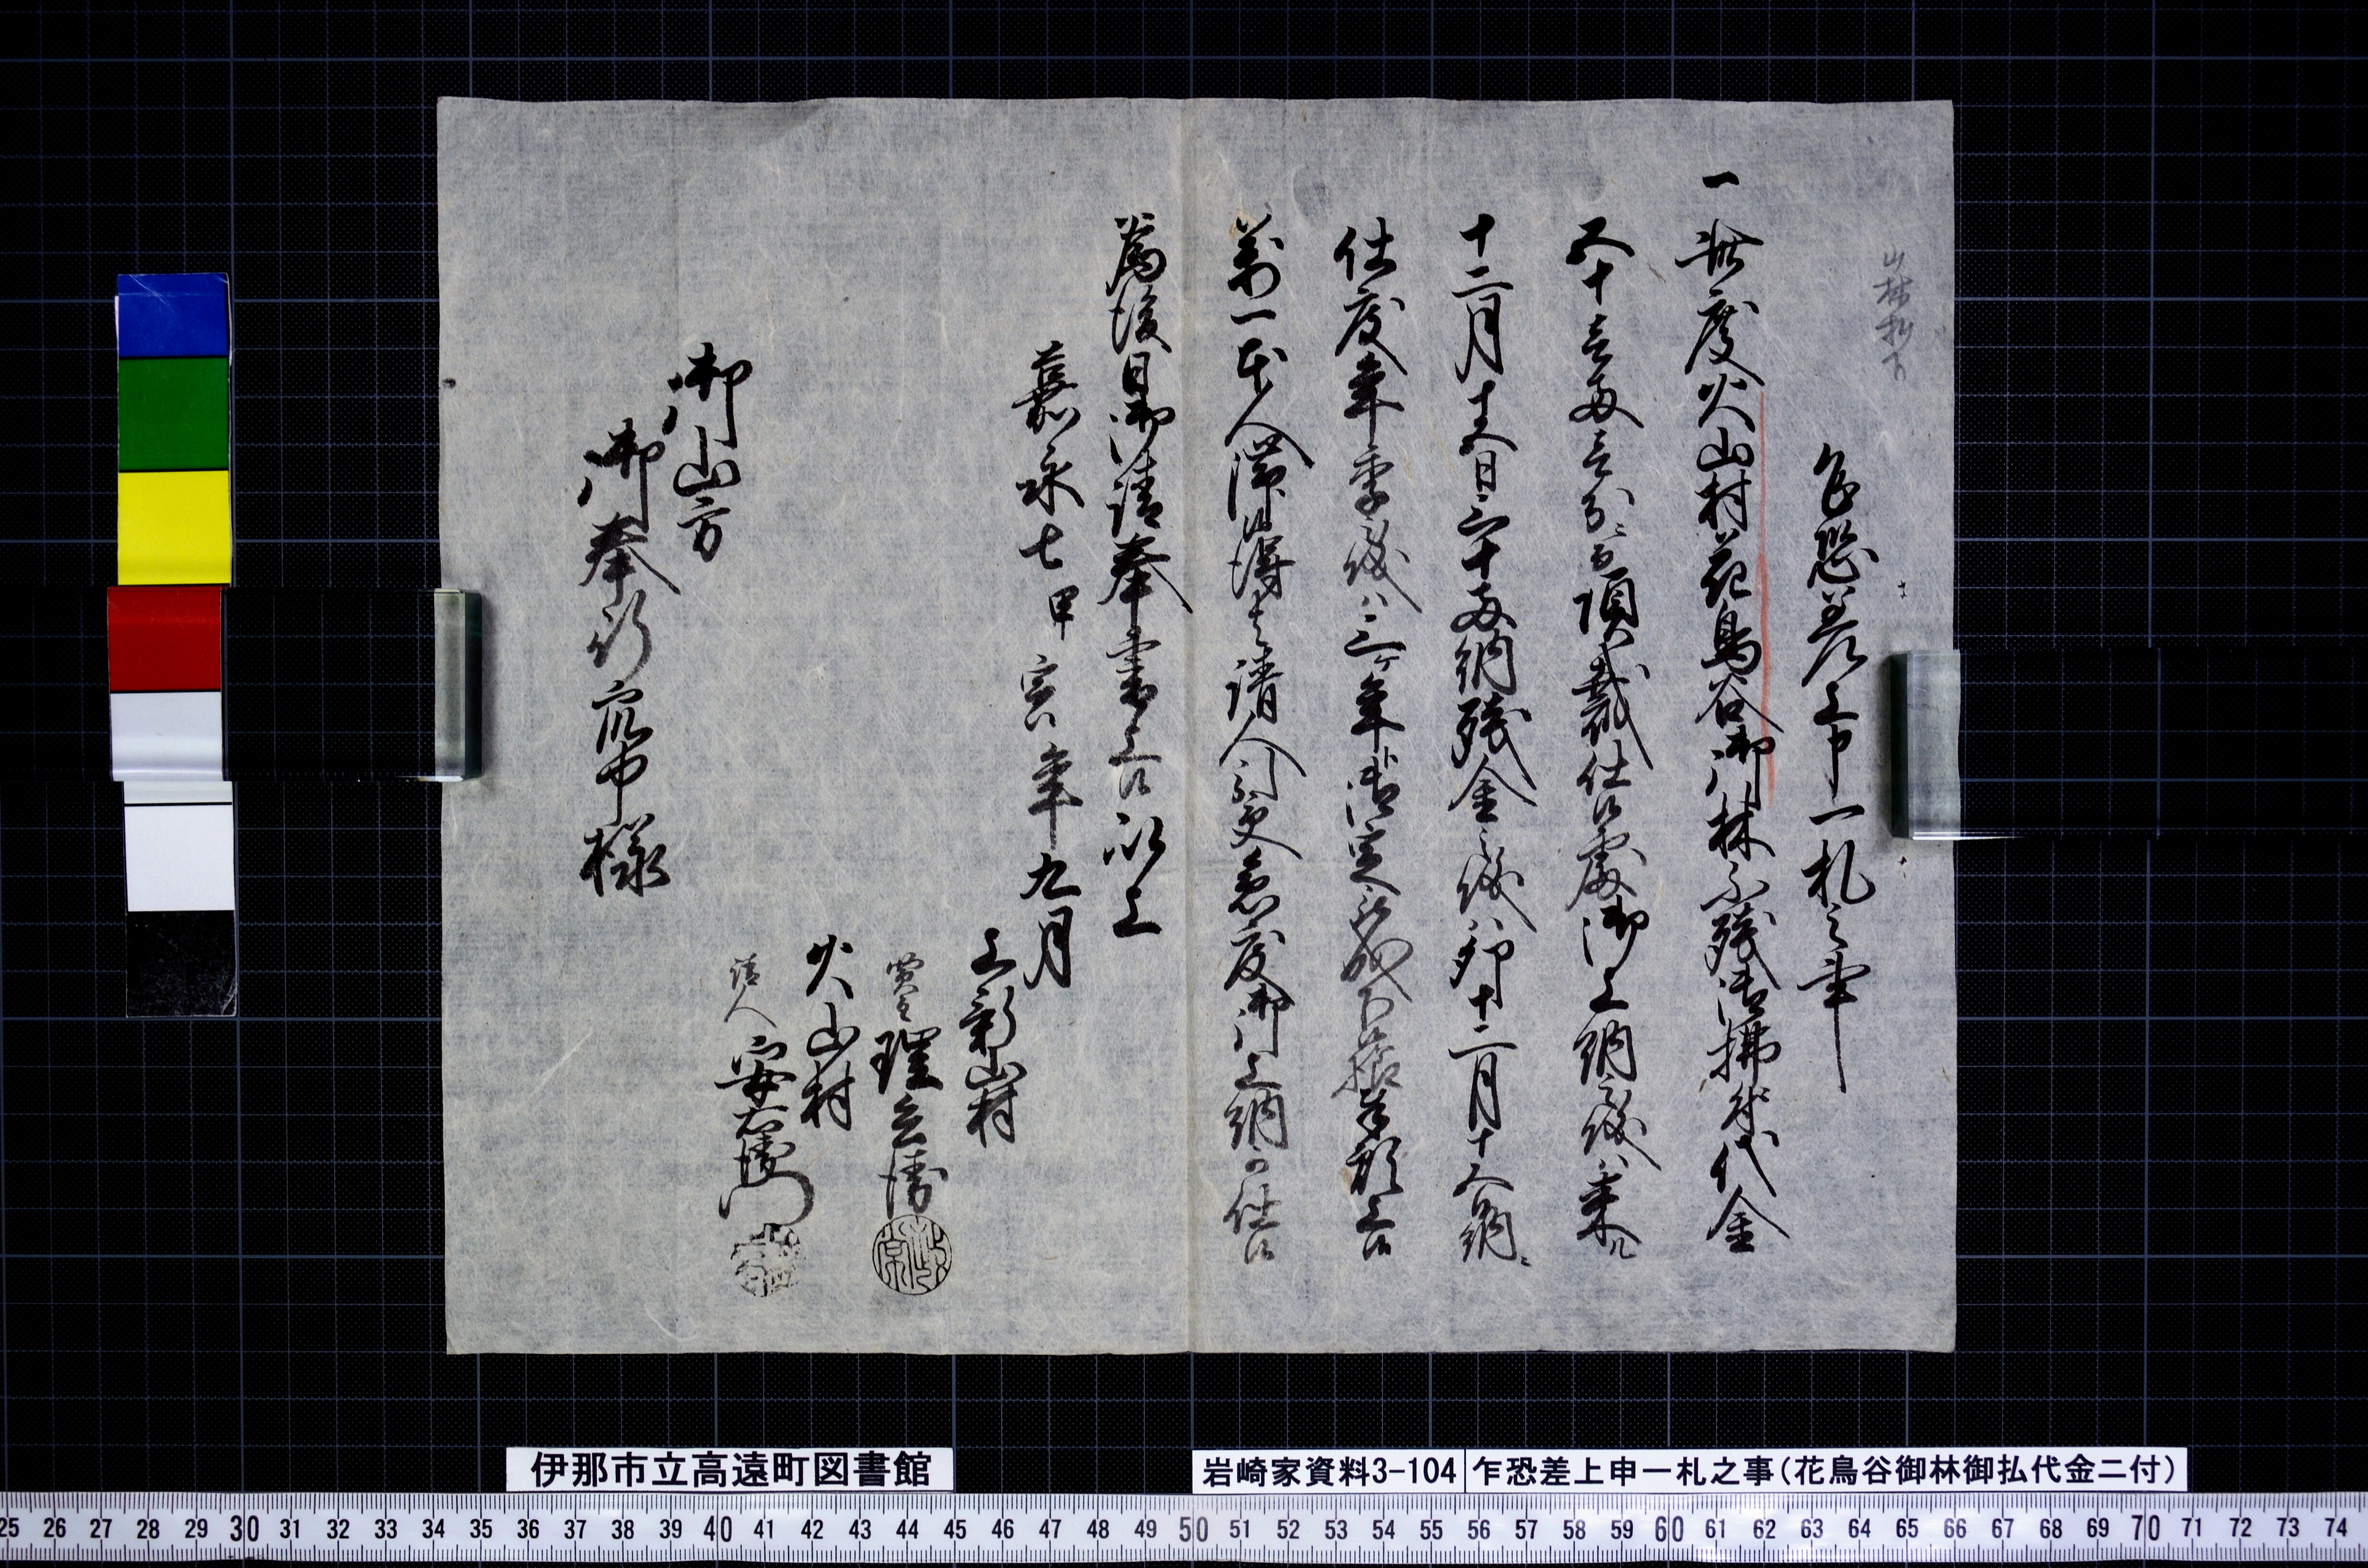 山林払下
乍恐差上申一札之事
一此度火山村花鳥谷御林不残御拂代金
五十三両三分ニ而頂戴仕候處御上納之儀ハ来ル
十二月十五日二十両納残金之儀ハ卯十二月十人納
仕度年季之儀ハ三ヶ年ト御定被成下候様奉願上候
万一本人滞候得は請人引受急度御上納可仕候
為後日御請奉書上候以上
嘉永七甲寅年九月
上新山村
買主 理兵衛
火山村
請人 安右衛門
御山方
御奉行衆中様
伊那市立高遠町図書館
岩崎家資料3-104
乍恐差上申一札之事(花鳥谷御林御払代金ニ付)
25 26 27 28 29 30 31 32 33 34 35 36 37 38 39 40 41 42 43 44 45 46 47 48 49 50 51 52 53 54 55 56 57 58 59 60 61 62 63 64 65 66 67 68 69 70 71 72 73 74